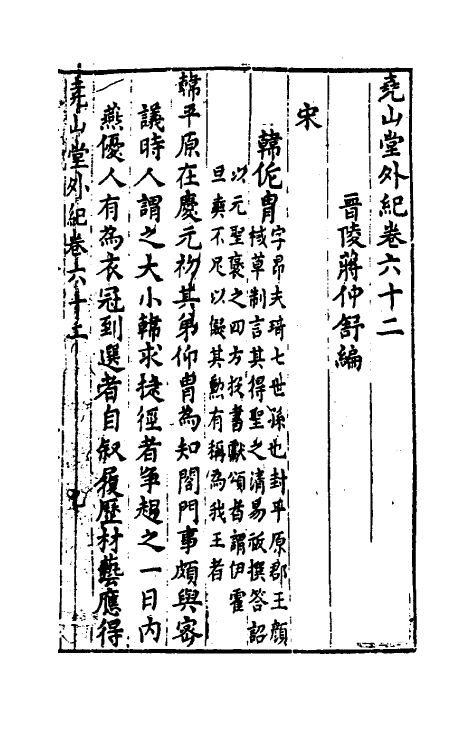 堯山堂外紀卷六十二
晉陵蔣仲舒編
宋
韓侂胄字昂夫琦七世孫也封平原郡王顏
棫草制言其得聖之清易祓撰答詔
以元聖褒之四方投書獻頌者謂伊霍
旦奭不足以儗其勲有稱為我王者
韓平原在慶元初其弟仰胄為知閤門事頗與密
議時人謂之大小韓求捷徑者爭趨之一日內
燕優人有為衣冠到選者自叙履歷材藝應得
堯山堂外紀卷六十二